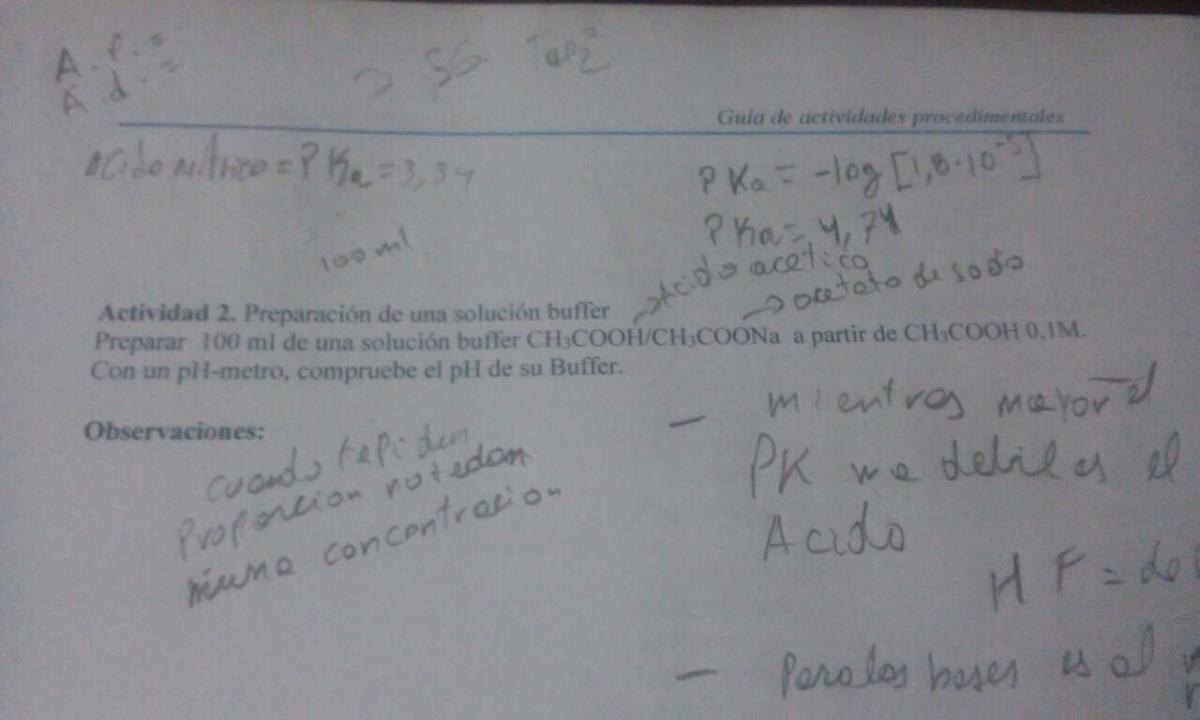 A. P. =
A. d. =
Guía de actividades procedimentales
PKa = -log [1,8·10⁻⁵]
= PKa = 3,34
PKa = 4,74
100 ml
Acido acetico
→ acetato de sodo
Actividad 2. Preparación de una solución buffer
Preparar 100 ml de una solución buffer CH₃COOH/CH₃COONa a partir de CH₃COOH 0,1M.
Con un pH-metro, compruebe el pH de su Buffer.
Observaciones:
cuando te piden
Proporcion no te dan
concentracion
— mientras mayor el
PK ma debil es el
Acido
HF =
— Para las bases es al